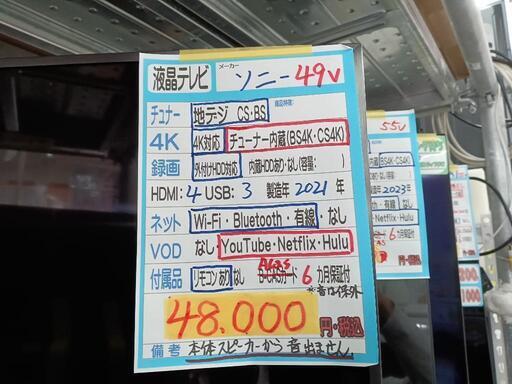 液晶テレビ メーカー ソニー 49V
チュナー 地デジ CS・BS 商品特徴:
4K 4K対応 チューナー内蔵(BS4K・CS4K)
録画 外付けHDD対応 内蔵HDDあり・なし(容量: )
HDMI: 4 USB: 3 製造年 2021 年
ネット Wi-Fi・Bluetooth・有線・なし
VOD なし・YouTube・Netflix・Hulu
付属品 リモコンあり・なし B-CASカード 6 カ月保証付
ACAS
※音口保外
48.000 円・税込
備考 本体スピーカーから音出ません。
55V
内蔵(BS4K・CS4K)
製造年 2023年
・有線・なし
Netflix・Hulu
6 カ月保証付
円・税込